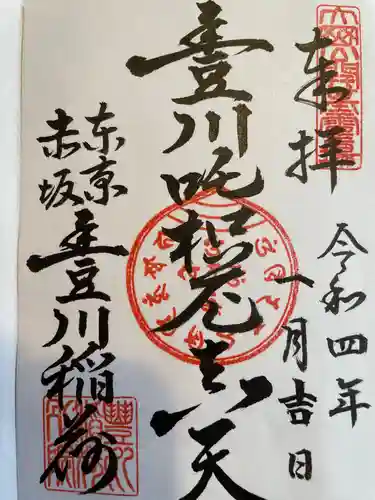 奉拝
令和四年
一月吉日
豊川吒枳尼真天
東京
赤坂
豊川稲荷